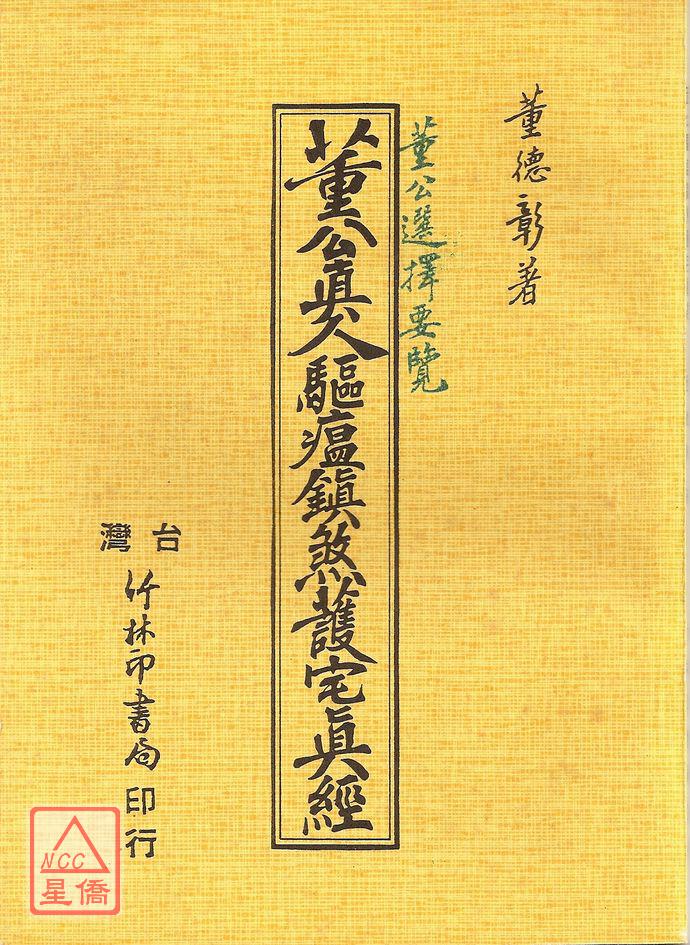 董德彰著
董公選擇要覽
董公真人驅瘟鎮煞護宅眞經
台灣
竹林印書局印行
NCC
星僑